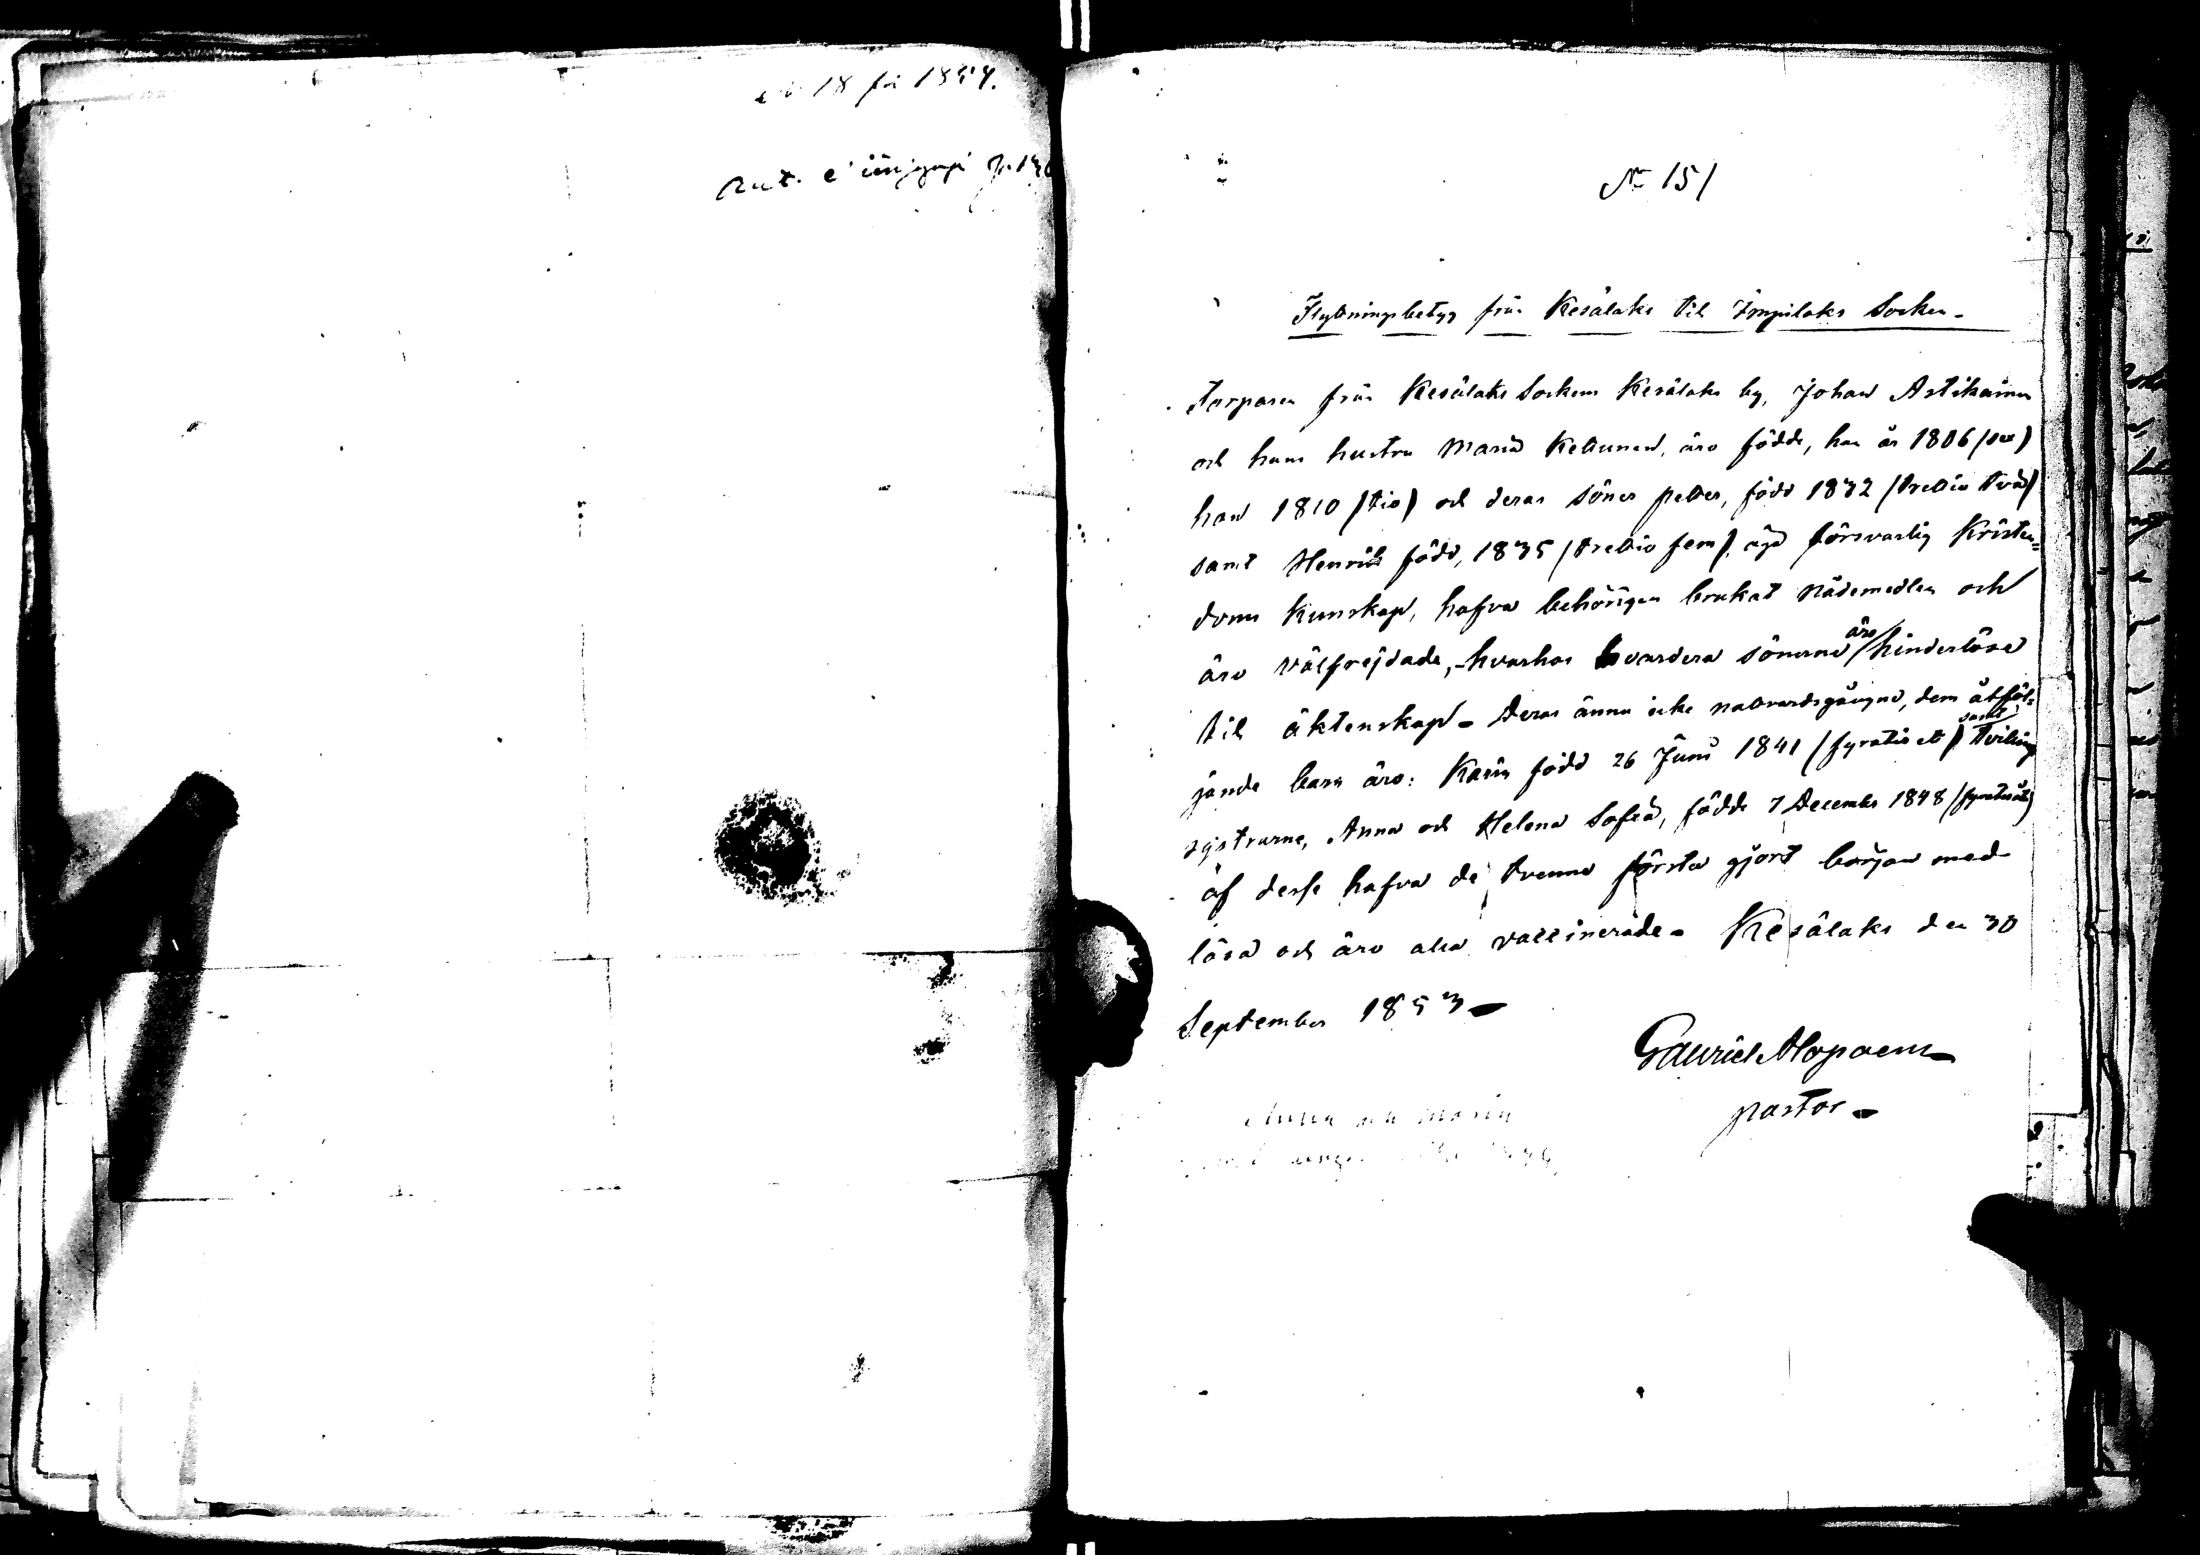 18 för 1854.
N:o 151
Flyttningsbetyg från Kesälaks til Impilaks Socken.
Torparen från Kesälaks Sockens Kesälaks by, Johan Astikainen
och hans hustru Maria Kettunen, äro födde, han år 1806 (sex)
hon 1810 (tio) och deras söner Petter, född 1832 (trettio två)
samt Henrik född, 1835 (trettio fem), äga försvarlig Kristen=
doms kunskap, hafva behörigen brukat nådemedlen och
äro välfrejdade, - hvarhos hvardera sönerna äro hinderlösa
til äktenskap - Deras ännu icke nattvardsgångna, dem åtföl=
jande barn äro: Karin född 26 Juni 1841 (fyratio ett) samt Tvilling
systrarne, Anna och Helena Sofia, födde 7 December 1848 (fyratioåtta)
af desse hafva de trenne första gjort början med
läsa och äro alla vaccinerade - Kesälaks den 30
September 1853 -
Gabriel Alopaeus
pastor -
Anna och Maria